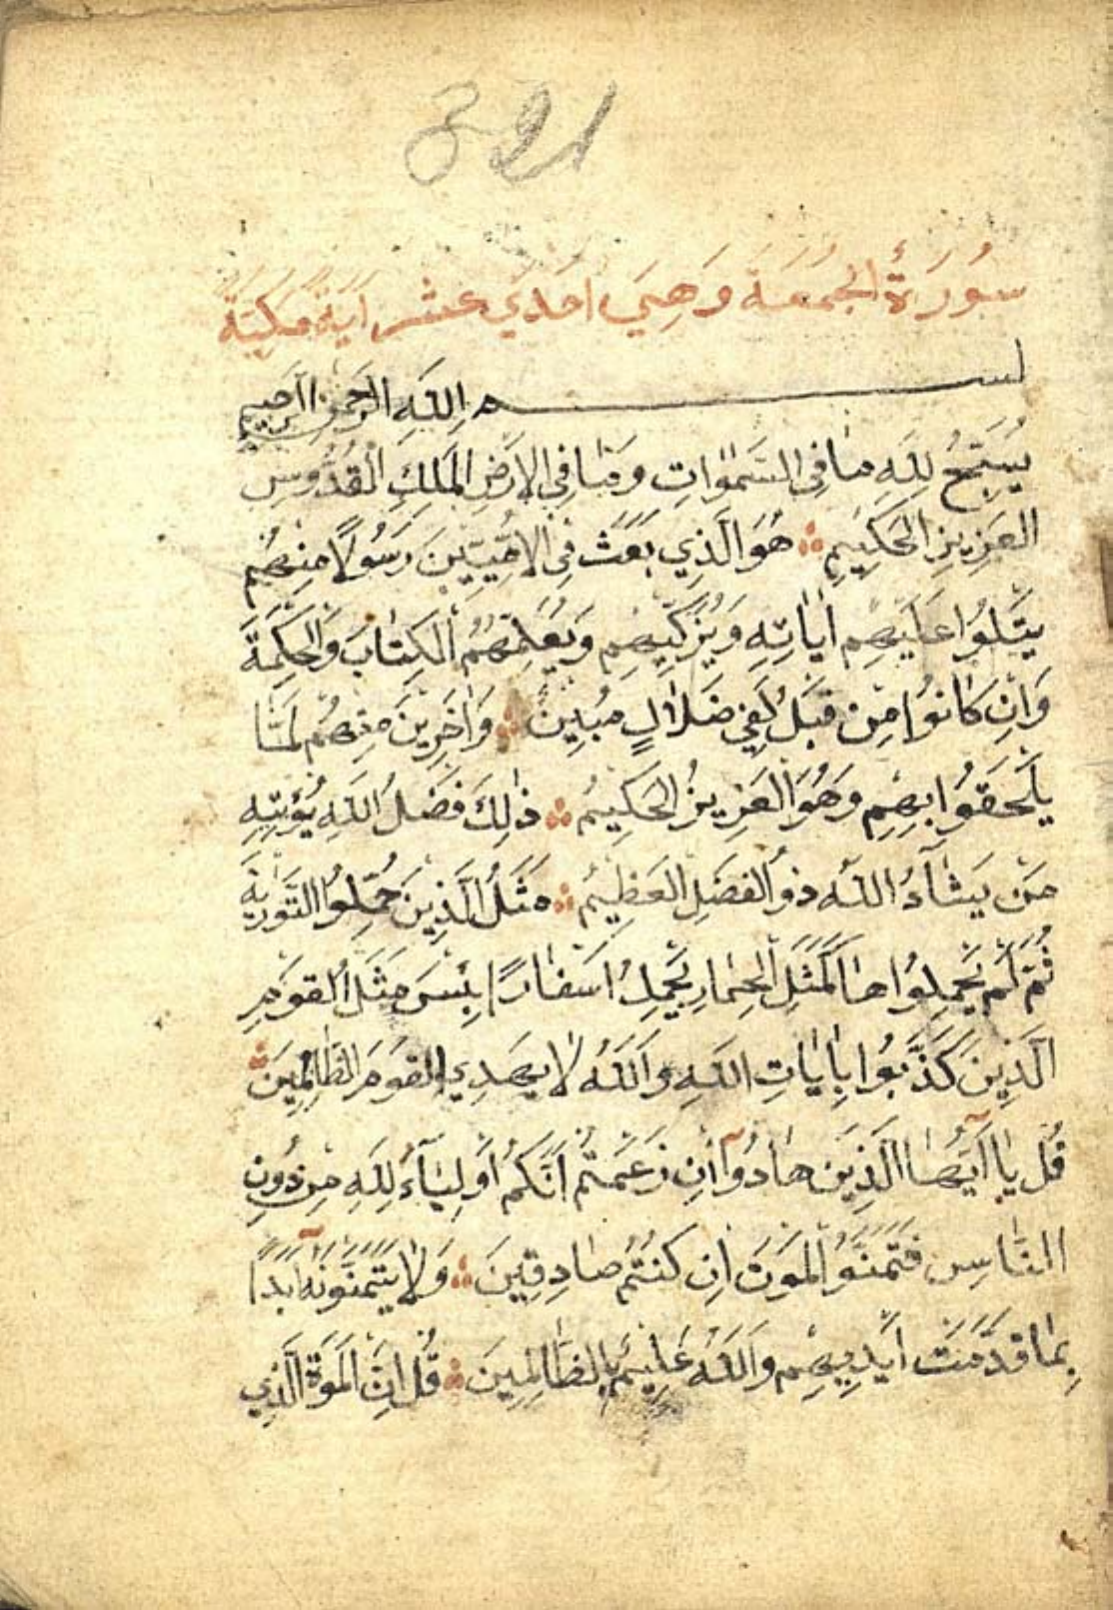 سُورَةُ الجُمُعَة وَهِيَ احَدَي عَشَر ايَة مَكِيَة
بسم اللَّهِ الرَّحمنِ الرَّحِيمِ
يُسَبِّحُ لِلَّهِ مَا فِى السَّمٰوَاتِ وَمَا فِي الاَرْضِ المَلِكِ القُدُّوسِ
العَزِيزِ الحَكِيمِ هُوَ الَّذِي بَعَثَ فِي الاُمِّيِّينَ رَسُولًا مِنهُم
يَتلُوا عَلَيهِم اٰيَاتِهِ وَيُزَكِّيهِم وَيُعَلِّمُهُمُ الكِتَابَ وَالحِكمَةَ
وَاِن كَانُوا مِن قَبلُ لَفِي ضَلَالٍ مُبِينٍ وَاٰخَرِينَ مِنهُم لَمَّا
يَلحَقُوا بِهِم وَهُوَ العَزِيزُ الحَكِيمُ ذٰلِكَ فَضلُ اللَّهِ يُؤتِيهِ
مَن يَشَآءُ اللَّه ذُو الفَضلِ العَظِيمُ مَثَلُ الَّذِينَ حُمِّلُوا التَّورٰيةَ
ثُمَّ لَم يَحمِلُوا هَا كَمَثَلِ الحِمَارِ يَحمِلُ اَسفَارًا بِئسَ مَثَلُ القَومِ
الَّذِينَ كَذَّبُوا بِاٰيَاتِ اللَّهِ وَاللَّهُ لَا يَهدِي القَومَ الظَّالِمِينَ
قُل يَا اَيُّهَا الَّذِينَ هَادُوآ اِن زَعَمتُم اَنَّكُم اَولِيَآءُ لِلَّهِ مِن دُونِ
النَّاسِ فَتَمَنَّوُ المَوتَ اِن كُنتُم صَادِقِينَ وَلَا يَتَمَنَّونَهُ اَبَدًا
بِمَا قَدَّمَت اَيدِيهِم وَاللَّهُ عَلِيمٌ بِالظَّالِمِينَ قُل اِنَّ المَوةَ الَّذِي